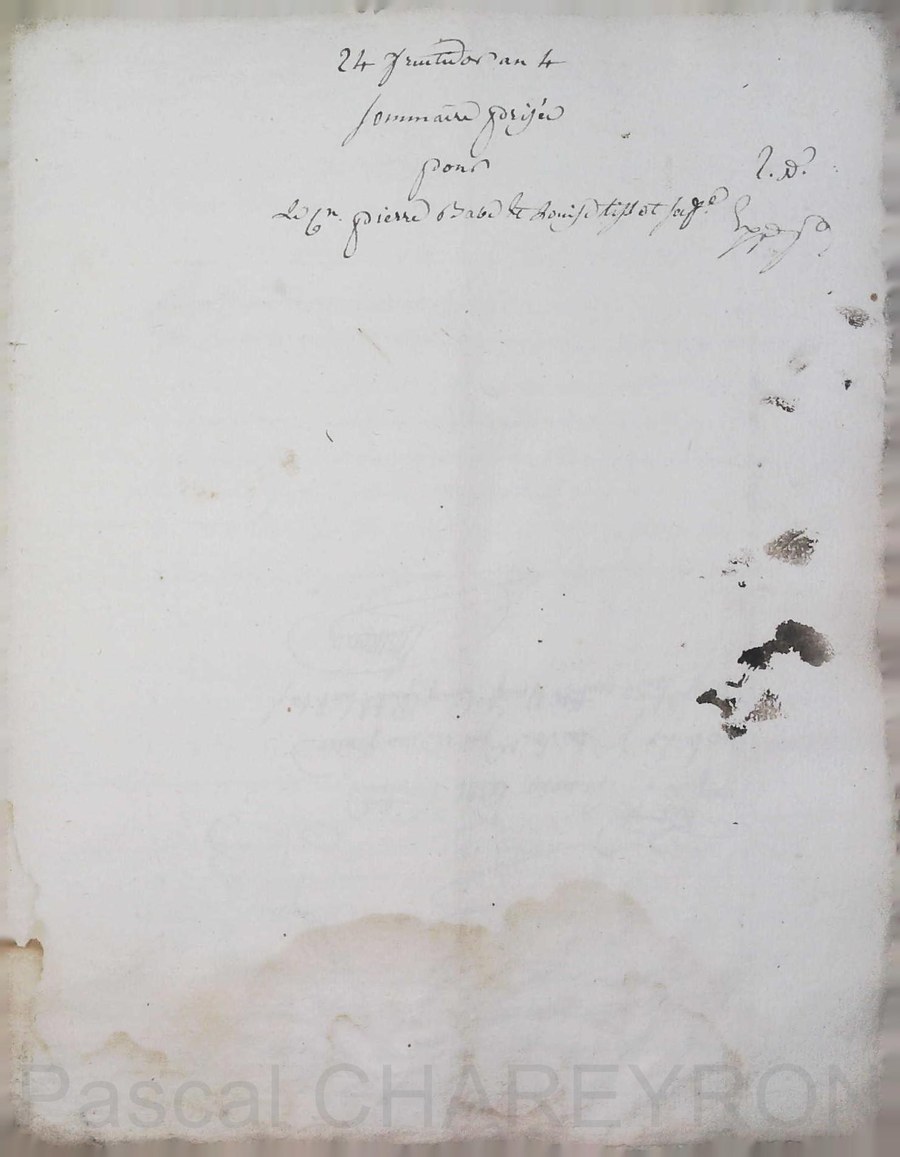 24 fructidor an 4
sommaire prisée
pour
Le Cn. pierre Babe et Louise tissot sa fe.
Pascal CHAREYRON